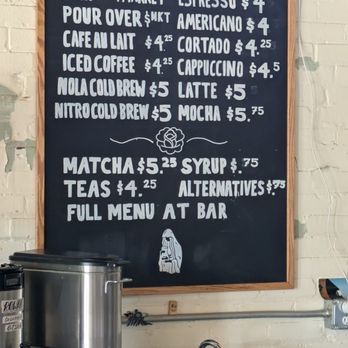 ESPRESSO $4
POUR OVER $MKT AMERICANO $4
CAFE AU LAIT $4.25 CORTADO $4.25
ICED COFFEE $4.25 CAPPUCCINO $4.5
NOLA COLD BREW $5 LATTE $5
NITRO COLD BREW $5 MOCHA $5.75
MATCHA $5.25 SYRUP $.75
TEAS $4.25 ALTERNATIVES $.75
FULL MENU AT BAR